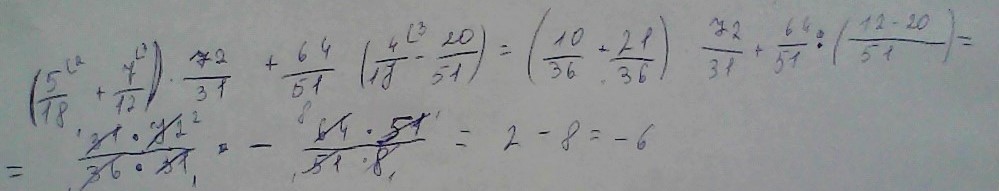 (5/18 + 7/12) · 72/31 + 64/51 (4/17 - 20/51) = (10/36 + 21/36) · 72/31 + 64/51 : (12-20/51) =
= 31 · 72/36 · 31 - 64 · 51/51 · 8 = 2 - 8 = -6